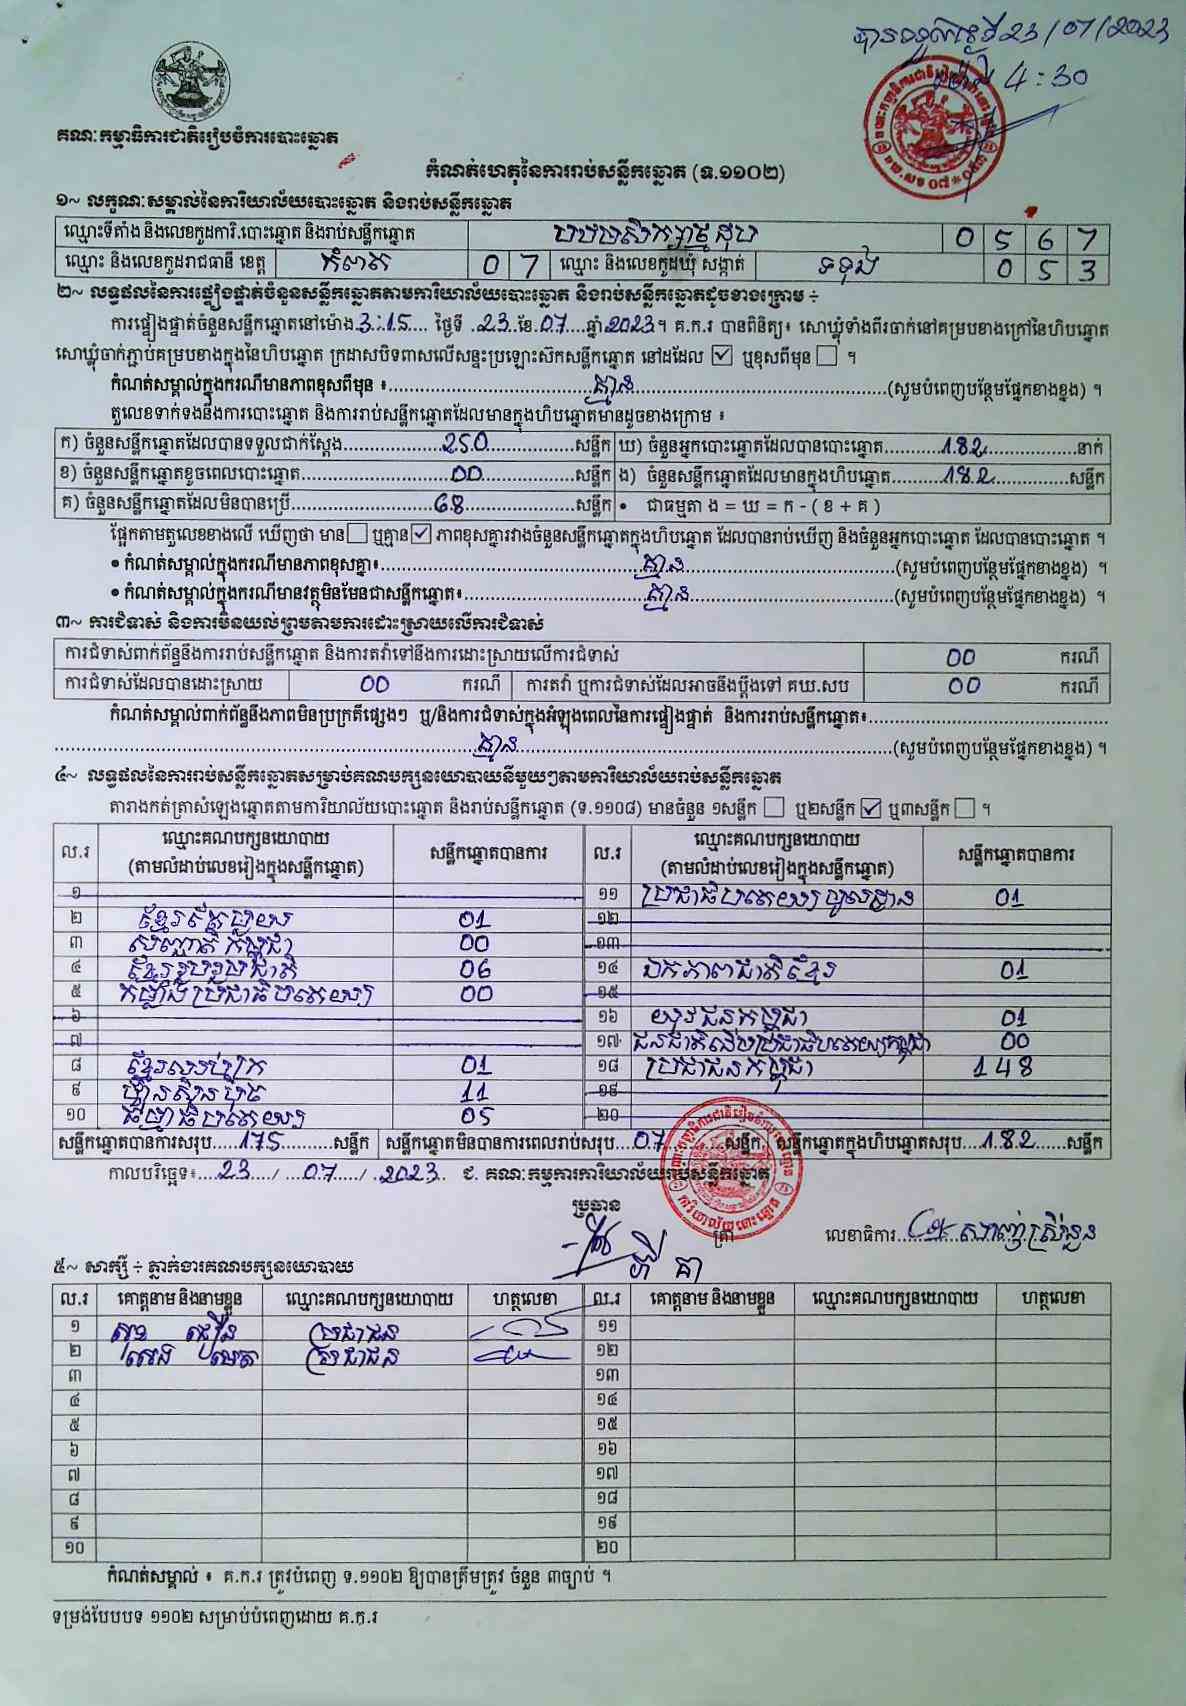 បានទទួលថ្ងៃទី 23/07/2023
ម៉ោង 4:30
គណៈកម្មាធិការជាតិរៀបចំការបោះឆ្នោត
កំណត់ហេតុនៃការរាប់សន្លឹកឆ្នោត (ទ.១១០២)
១~ លក្ខណៈសម្គាល់នៃការិយាល័យបោះឆ្នោត និងរាប់សន្លឹកឆ្នោត
ឈ្មោះទីតាំង និងលេខកូដការិ.បោះឆ្នោត និងរាប់សន្លឹកឆ្នោត 0 5 6 7
ឈ្មោះ និងលេខកូដរាជធានី ខេត្ត កំពត 0 7 ឈ្មោះ និងលេខកូដឃុំ សង្កាត់ 0 5 3
២~ លទ្ធផលនៃការផ្ទៀងផ្ទាត់ចំនួនសន្លឹកឆ្នោតតាមការិយាល័យបោះឆ្នោត និងរាប់សន្លឹកឆ្នោតដូចខាងក្រោម ÷
ការផ្ទៀងផ្ទាត់ចំនួនសន្លឹកឆ្នោតនៅម៉ោង 3:15 ថ្ងៃទី 23 ខែ 07 ឆ្នាំ 2023។ គ.ក.រ បានពិនិត្យ៖ សោឃ្លុំទាំងពីរចាក់នៅគម្របខាងក្រៅនៃហិបឆ្នោត
សោឃ្លុំចាក់ភ្ជាប់គម្របខាងក្នុងនៃហិបឆ្នោត ក្រដាសបិទពាសលើសន្ទះប្រឡោះស៊កសន្លឹកឆ្នោត នៅដដែល ☑ ឬខុសពីមុន ☐ ។
កំណត់សម្គាល់ក្នុងករណីមានភាពខុសពីមុន ៖ គ្មាន (សូមបំពេញបន្ថែមផ្នែកខាងខ្នង) ។
តួលេខទាក់ទងនឹងការបោះឆ្នោត និងការរាប់សន្លឹកឆ្នោតដែលមានក្នុងហិបឆ្នោតមានដូចខាងក្រោម ៖
ក) ចំនួនសន្លឹកឆ្នោតដែលបានទទួលជាក់ស្តែង 250 សន្លឹក ឃ) ចំនួនអ្នកបោះឆ្នោតដែលបានបោះឆ្នោត 182 នាក់
ខ) ចំនួនសន្លឹកឆ្នោតខូចពេលបោះឆ្នោត 00 សន្លឹក ង) ចំនួនសន្លឹកឆ្នោតដែលមានក្នុងហិបឆ្នោត 182 សន្លឹក
គ) ចំនួនសន្លឹកឆ្នោតដែលមិនបានប្រើ 68 សន្លឹក • ជាធម្មតា ង = ឃ = ក - ( ខ + គ )
ផ្អែកតាមតួលេខខាងលើ ឃើញថា មាន ☐ ឬគ្មាន ☑ ភាពខុសគ្នារវាងចំនួនសន្លឹកឆ្នោតក្នុងហិបឆ្នោត ដែលបានរាប់ឃើញ និងចំនួនអ្នកបោះឆ្នោត ដែលបានបោះឆ្នោត ។
• កំណត់សម្គាល់ក្នុងករណីមានភាពខុសគ្នា៖ គ្មាន (សូមបំពេញបន្ថែមផ្នែកខាងខ្នង) ។
• កំណត់សម្គាល់ក្នុងករណីមានវត្ថុមិនមែនជាសន្លឹកឆ្នោត៖ គ្មាន (សូមបំពេញបន្ថែមផ្នែកខាងខ្នង) ។
៣~ ការជំទាស់ និងការមិនយល់ព្រមតាមការដោះស្រាយលើការជំទាស់
ការជំទាស់ពាក់ព័ន្ធនឹងការរាប់សន្លឹកឆ្នោត និងការតវ៉ាទៅនឹងការដោះស្រាយលើការជំទាស់ 00 ករណី
ការជំទាស់ដែលបានដោះស្រាយ 00 ករណី ការតវ៉ា ឬការជំទាស់ដែលអាចនឹងប្តឹងទៅ គឃ.សប 00 ករណី
កំណត់សម្គាល់ពាក់ព័ន្ធនឹងភាពមិនប្រក្រតីផ្សេងៗ ឬ/និងការជំទាស់ក្នុងអំឡុងពេលនៃការផ្ទៀងផ្ទាត់ និងការរាប់សន្លឹកឆ្នោត៖
គ្មាន (សូមបំពេញបន្ថែមផ្នែកខាងខ្នង) ។
៤~ លទ្ធផលនៃការរាប់សន្លឹកឆ្នោតសម្រាប់គណបក្សនយោបាយនីមួយៗតាមការិយាល័យរាប់សន្លឹកឆ្នោត
តារាងកត់ត្រាសំឡេងឆ្នោតតាមការិយាល័យបោះឆ្នោត និងរាប់សន្លឹកឆ្នោត (ទ.១១០៨) មានចំនួន ១សន្លឹក ☐ ឬ២សន្លឹក ☑ ឬ៣សន្លឹក ☐ ។
ល.រ ឈ្មោះគណបក្សនយោបាយ (តាមលំដាប់លេខរៀងក្នុងសន្លឹកឆ្នោត) សន្លឹកឆ្នោតបានការ ល.រ ឈ្មោះគណបក្សនយោបាយ (តាមលំដាប់លេខរៀងក្នុងសន្លឹកឆ្នោត) សន្លឹកឆ្នោតបានការ
១ ១១ ប្រជាធិបតេយ្យមូលដ្ឋាន 01
២ ខ្មែរឈប់ក្រីក្រ 01 ១២
៣ សញ្ជាតិកម្ពុជា 00 ១៣
៤ ខ្មែររួបរួមជាតិ 06 ១៤ ឯកភាពជាតិខ្មែរ 01
៥ កម្លាំងប្រជាធិបតេយ្យ 00 ១៥
៦ ១៦ យុវជនកម្ពុជា 01
៧ ១៧ ជនជាតិដើមប្រជាធិបតេយ្យកម្ពុជា 00
៨ 01 ១៨ ប្រជាជនកម្ពុជា 148
៩ ហ្វ៊ុនស៊ិនប៉ិច 11 ១៩
១០ ធម្មាធិបតេយ្យ 05 ២០
សន្លឹកឆ្នោតបានការសរុប 175 សន្លឹក សន្លឹកឆ្នោតមិនបានការពេលរាប់សរុប 07 សន្លឹក សន្លឹកឆ្នោតក្នុងហិបឆ្នោតសរុប 182 សន្លឹក
កាលបរិច្ឆេទ៖ 23 / 07 / 2023 ជ. គណៈកម្មការការិយាល័យរាប់សន្លឹកឆ្នោត
ប្រធាន
ត្រា លេខាធិការ
ហ៊ី ធា
៥~ សាក្សី ÷ ភ្នាក់ងារគណបក្សនយោបាយ
ល.រ គោត្តនាម និងនាមខ្លួន ឈ្មោះគណបក្សនយោបាយ ហត្ថលេខា ល.រ គោត្តនាម និងនាមខ្លួន ឈ្មោះគណបក្សនយោបាយ ហត្ថលេខា
១ ប្រជាជន ១១
២ ប្រជាជន ១២
៣ ១៣
៤ ១៤
៥ ១៥
៦ ១៦
៧ ១៧
៨ ១៨
៩ ១៩
១០ ២០
កំណត់សម្គាល់ ៖ គ.ក.រ ត្រូវបំពេញ ទ.១១០២ ឱ្យបានត្រឹមត្រូវ ចំនួន ៣ច្បាប់ ។
ទម្រង់បែបបទ ១១០២ សម្រាប់បំពេញដោយ គ.ក.រ